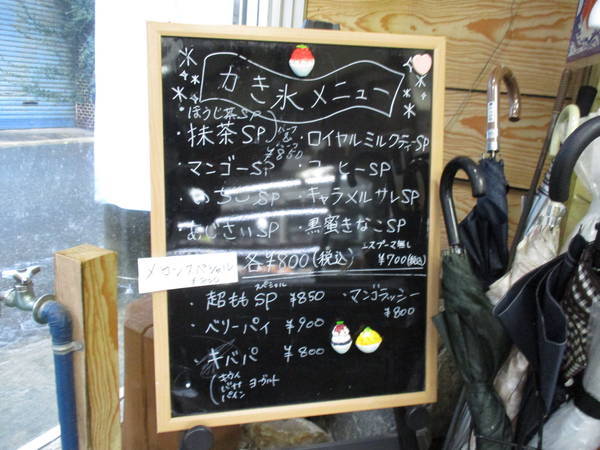 かき氷メニュー
・ほうじ茶SP
・抹茶SP
¥850
・ロイヤルミルクティーSP
・マンゴーSP ・コーヒーSP
・いちごSP ・キャラメルサレSP
・あじさいSP ・黒蜜きなこSP
各¥800(税込)
エスプーマ無し
¥700(税込)
メロンスペシャル
スペシャル
・超ももSP ¥850 ・マンゴラッシー
¥800
・ベリーパイ ¥900
・キバパ ¥800
キウイ
バナナ ヨーグルト
パイン